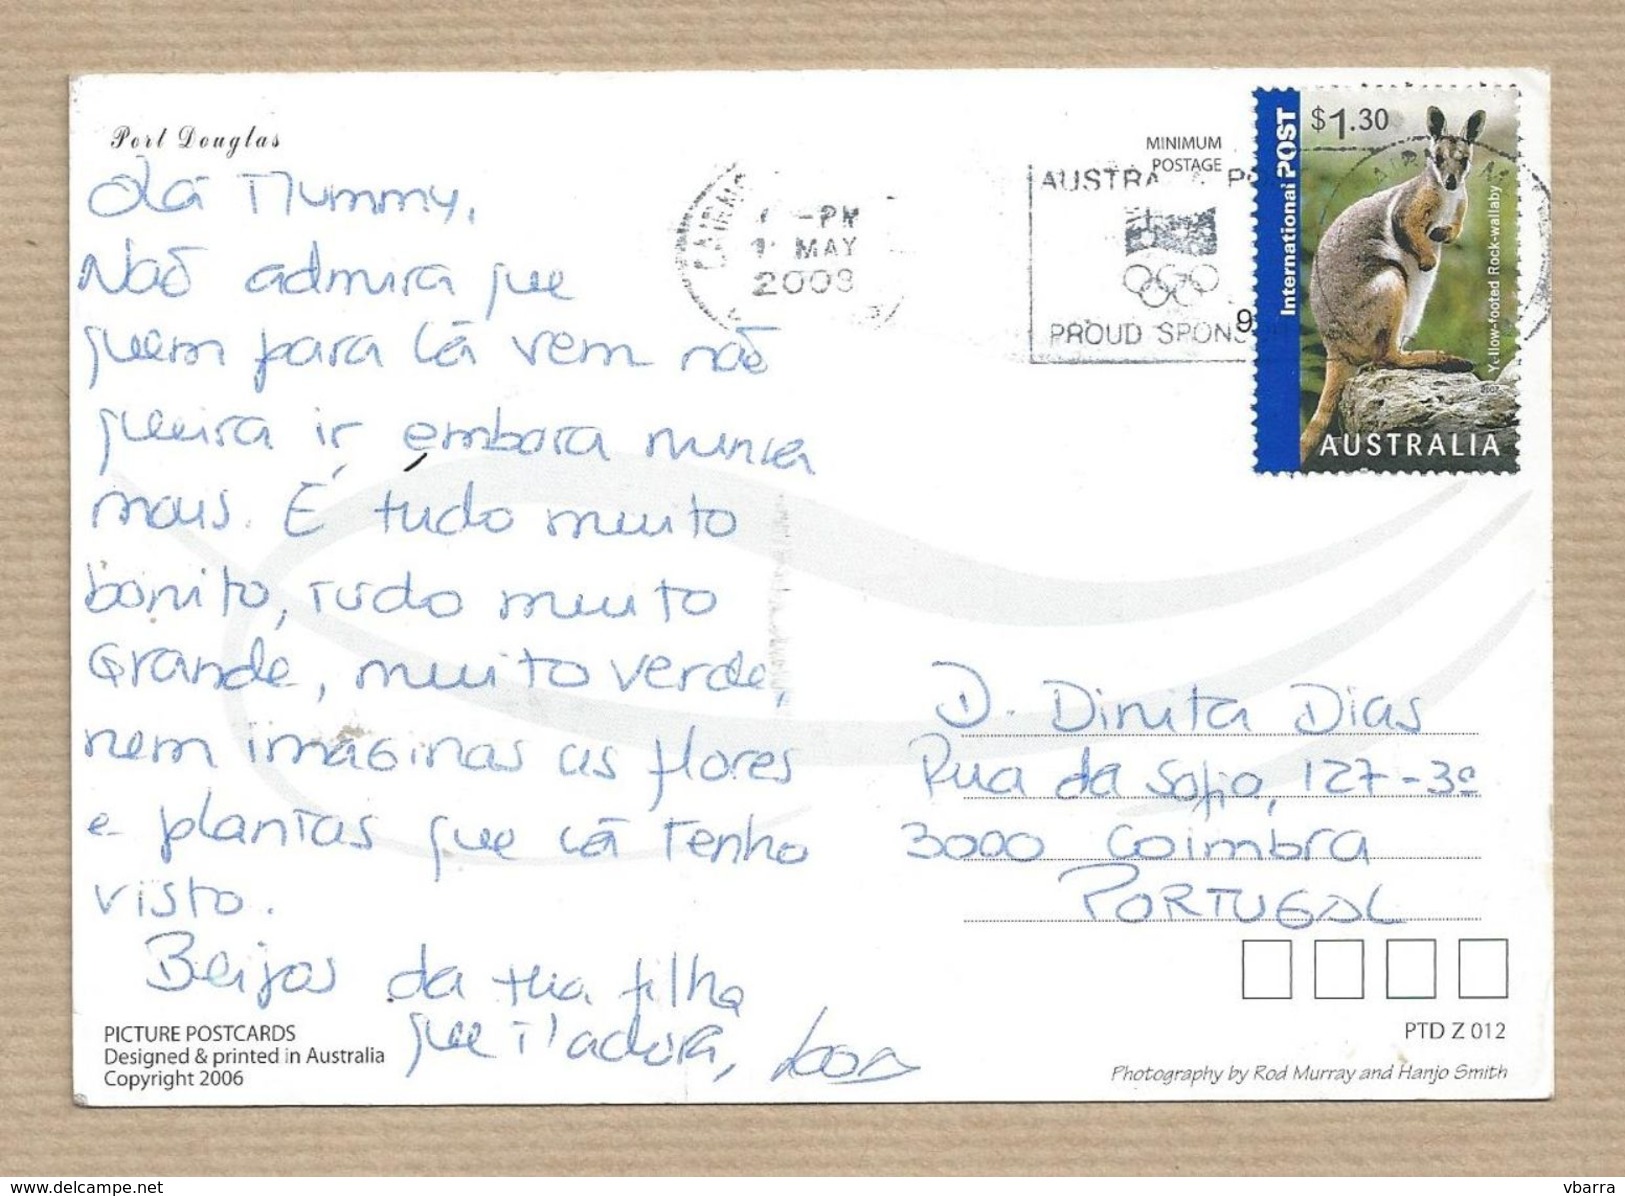 Port Douglas
Olá Mummy,
Não admira que
quem para cá vem não
queira ir embora nunca
mais. É tudo muito
bonito, tudo muito
Grande, muito verde,
nem imaginas as flores
e plantas que cá tenho
visto.
Beijos da tua filha
que t'adora,
PICTURE POSTCARDS
Designed & printed in Australia
Copyright 2006
CAIRNS
PM
MAY
MINIMUM
POSTAGE
PROUD
International POST
$1.30
Yellow-footed Rock-wallaby
2007
AUSTRALIA
D. Dinita Dias
Rua da Sofia, 127-3º
3000 Coimbra
PORTUGAL
PTD Z 012
Photography by Rod Murray and Hanjo Smith
delcampe.net
vbarra